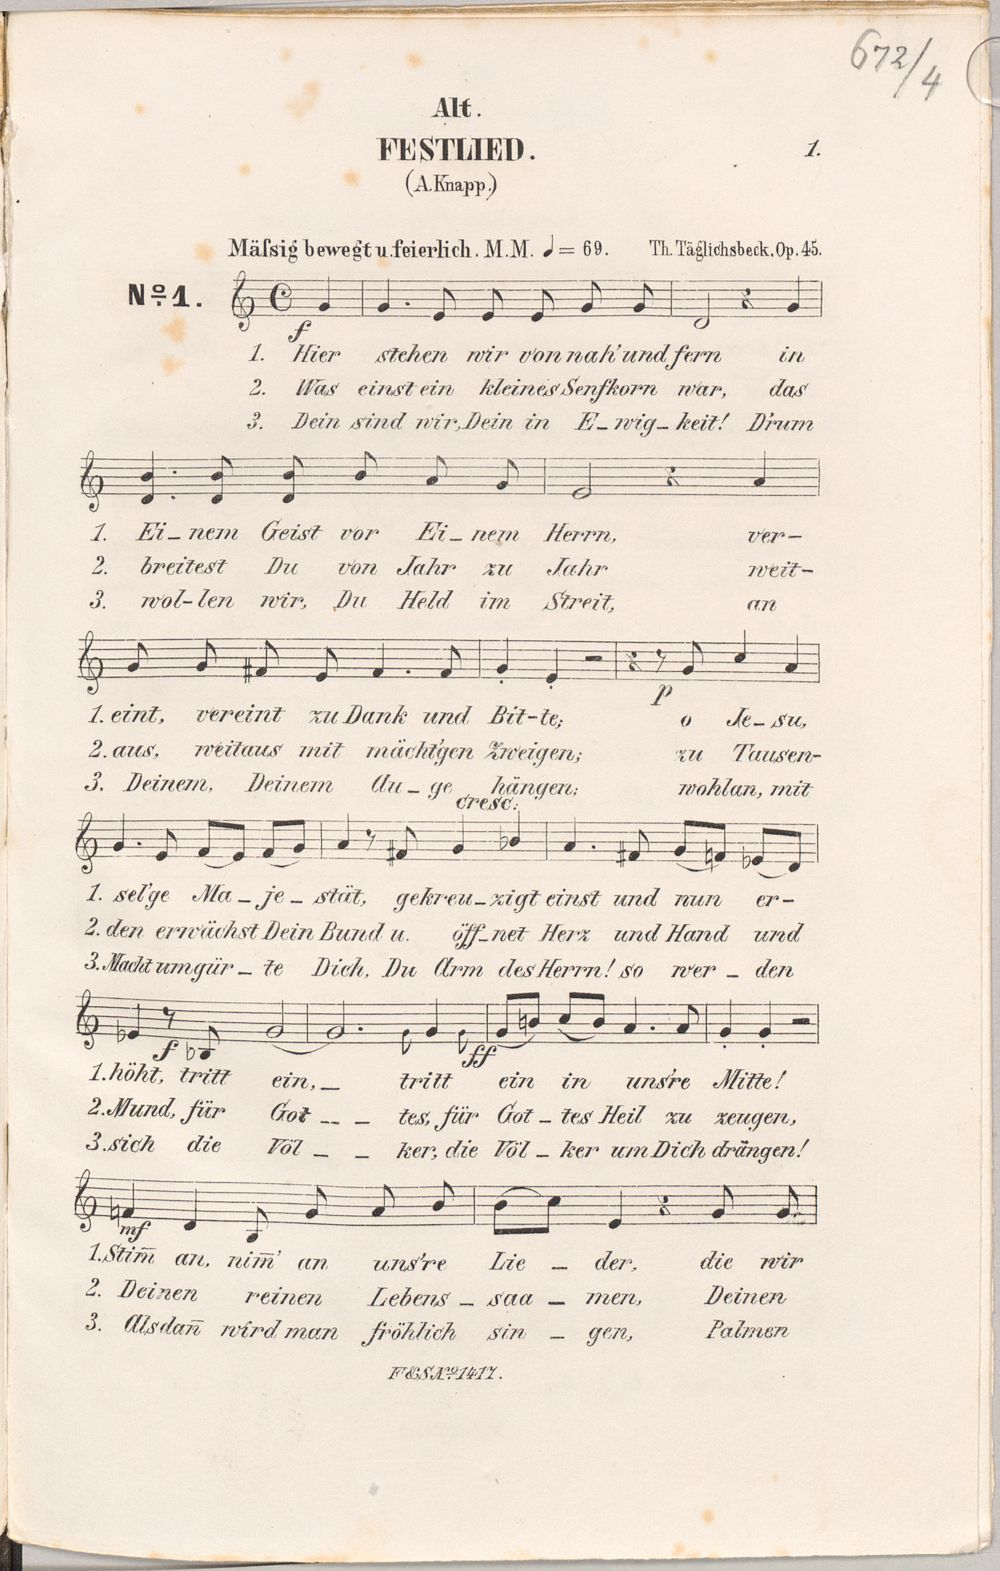 672/4
Alt.
FESTLIED.
1.
(A. Knapp.)
Mäſsig bewegt u. feierlich. M.M. ♩= 69. Th. Täglichsbeck. Op. 45.
Nọ 1.
f
1. Hier stehen wir von nah' und fern in
2. Was einst ein kleines Senfkorn war, das
3. Dein sind wir, Dein in E_wig_keit! D'rum
1. Ei_nem Geist vor Ei_nem Herrn, ver-
2. breitest Du von Jahr zu Jahr weit-
3. wol-len wir, Du Held im Streit, an
p
1. eint, vereint zu Dank und Bit-te; o Je_su,
2. aus, weitaus mit mächt'gen Zweigen; zu Tausen-
3. Deinem, Deinem Au_ge hängen: wohlan, mit
cresc:
1. sel'ge Ma_je_stät, gekreu_zigt einst und nun er-
2. den erwächst Dein Bund u. öff_net Herz und Hand und
3. Macht umgür_te Dich, Du Arm des Herrn! so wer_den
f ff
1. höht, tritt ein,_ tritt ein in uns're Mitte!
2. Mund, für Got__tes, für Got_tes Heil zu zeugen,
3. sich die Völ__ker, die Völ_ker um Dich drängen!
mf
1. Stim̄ an, nim̄' an uns're Lie_der, die wir
2. Deinen reinen Lebens_saa_men, Deinen
3. Alsdan̄ wird man fröhlich sin_gen, Palmen
F&S Nọ 1417.